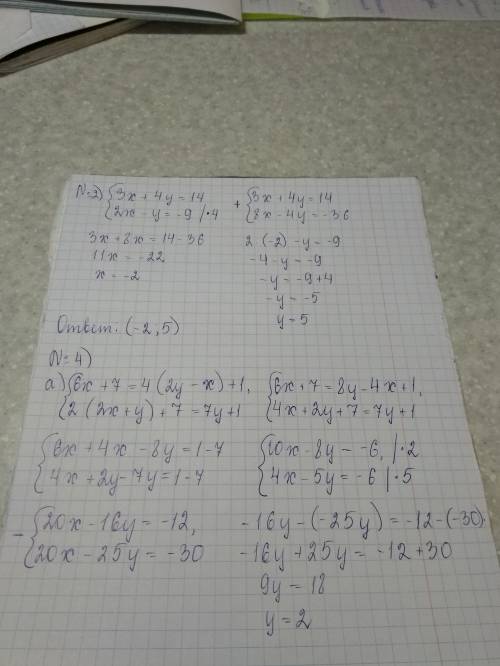 №2) {3x + 4y = 14
{2x - y = -9 |·4
+ {3x + 4y = 14
{8x - 4y = -36
3x + 8x = 14 - 36
11x = -22
x = -2
2·(-2) - y = -9
-4 - y = -9
-y = -9+4
-y = -5
y = 5
Ответ: (-2, 5)
№4)
а) {6x + 7 = 4(2y - x) + 1,
{2(2x + y) + 7 = 7y + 1
{6x + 7 = 8y - 4x + 1,
{4x + 2y + 7 = 7y + 1
{6x + 4x - 8y = 1 - 7
{4x + 2y - 7y = 1 - 7
{10x - 8y = -6, |·2
{4x - 5y = -6 |·5
- {20x - 16y = -12,
{20x - 25y = -30
-16y - (-25y) = -12 - (-30)
-16y + 25y = -12 + 30
9y = 18
y = 2